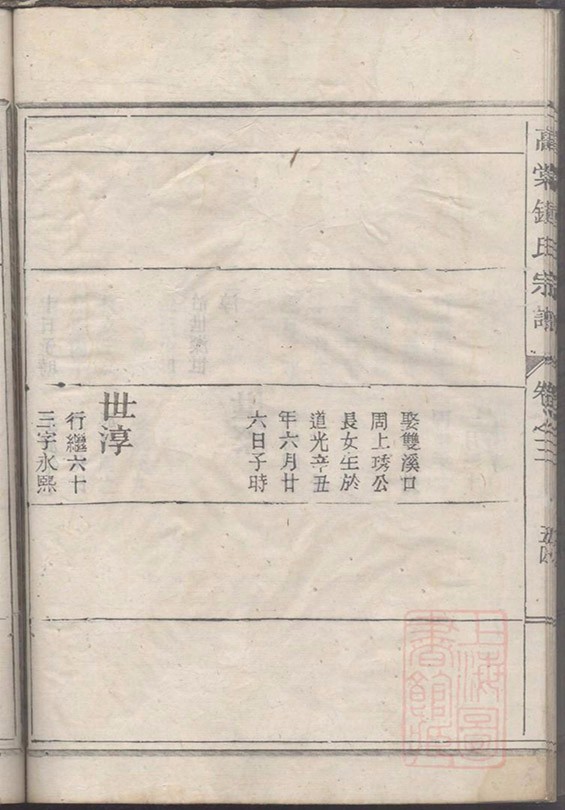 高棠鍾氏宗譜
卷之三
五四
娶雙溪口
周上琇公
長女生於
道光辛丑
年六月廿
六日子時
世淳
行繼六十
三字永熙
上海圖
書館藏